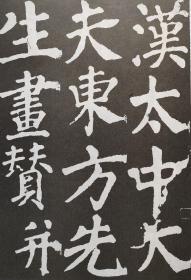 漢太中大
夫東方先
生畫赞并